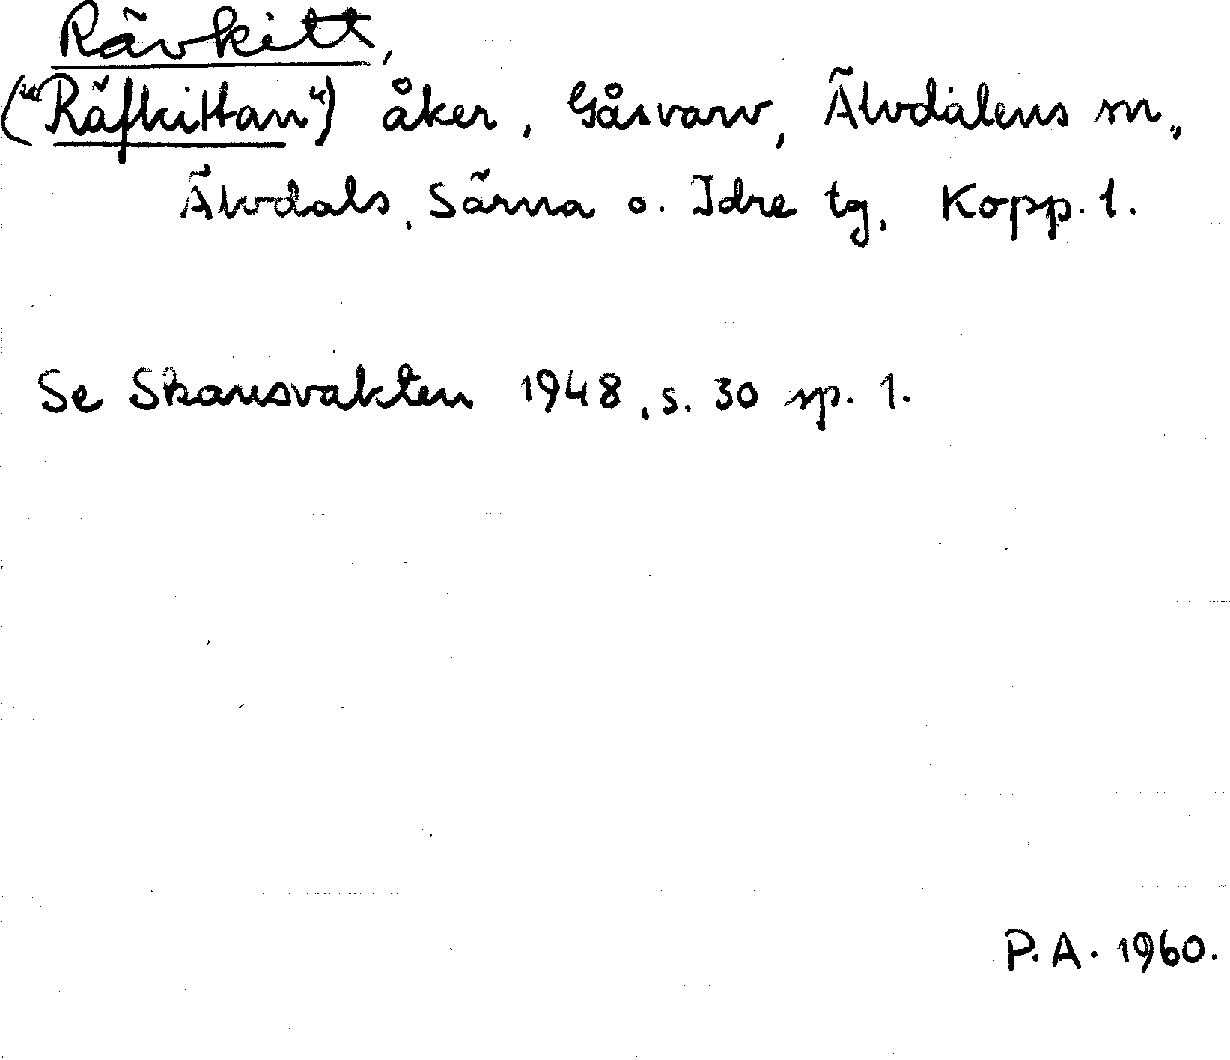 Rävkitt,
("Räfkittan") åker, Gåsvarv, Älvdalens sn,
Älvdals, Särna o. Idre tg, Kopp. l.
Se Skansvakten 1948, s. 30 sp. 1.
P. A. 1960.